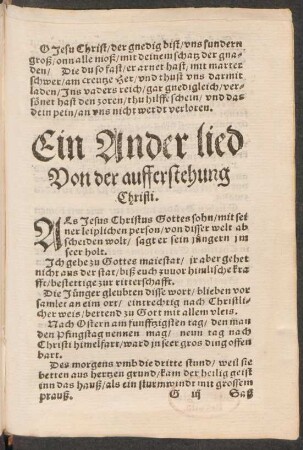 O Jesu Christ/der gnedig bist/vns sundern
groß/onn alle moß/mit deinem schatz der gna-
den/ Die du so fast/er arnet hast/mit marter
schwer/am creutze Her/vnd thust vns darmit
laden/Ins vaders reich/gar gnedigleich/ver-
sönet hast den zoren/thu hilffe schein/vnd das
dein pein/an vns nicht werdt verloren.
Ein Ander lied
Von der aufferstehung
Christi.
AEs Jesus Christus Gottes sohn/mit sei
ner leiplichen person/von disser welt ab
scheden wolt/ sagt er sein jüngern jm
seer holt.
Ich gehe zu Gottes maiestat/ ir aber gehet
nicht aus der stat/biß euch zuuor himlische kra
fft/bestettige zur ritterschafft.
Die Jünger gleubten disse wort/blieben vor
samlet an eim ort/ eintrechtig nach Christli-
cher weis/bettend zu Gott mit allem vleis.
Nach Ostern am funfftzigsten tag/den man
den Pfingstag nennen mag/ neun tag nach
Christi himelfart/ward jn seer gros ding offen
bart.
Des morgens vmb die dritte stund/ weil sie
betten aus hertzen grund/kam der heilig geist
inn das hauß/als ein sturmwindt mit grossem
prauß. G iij Sag